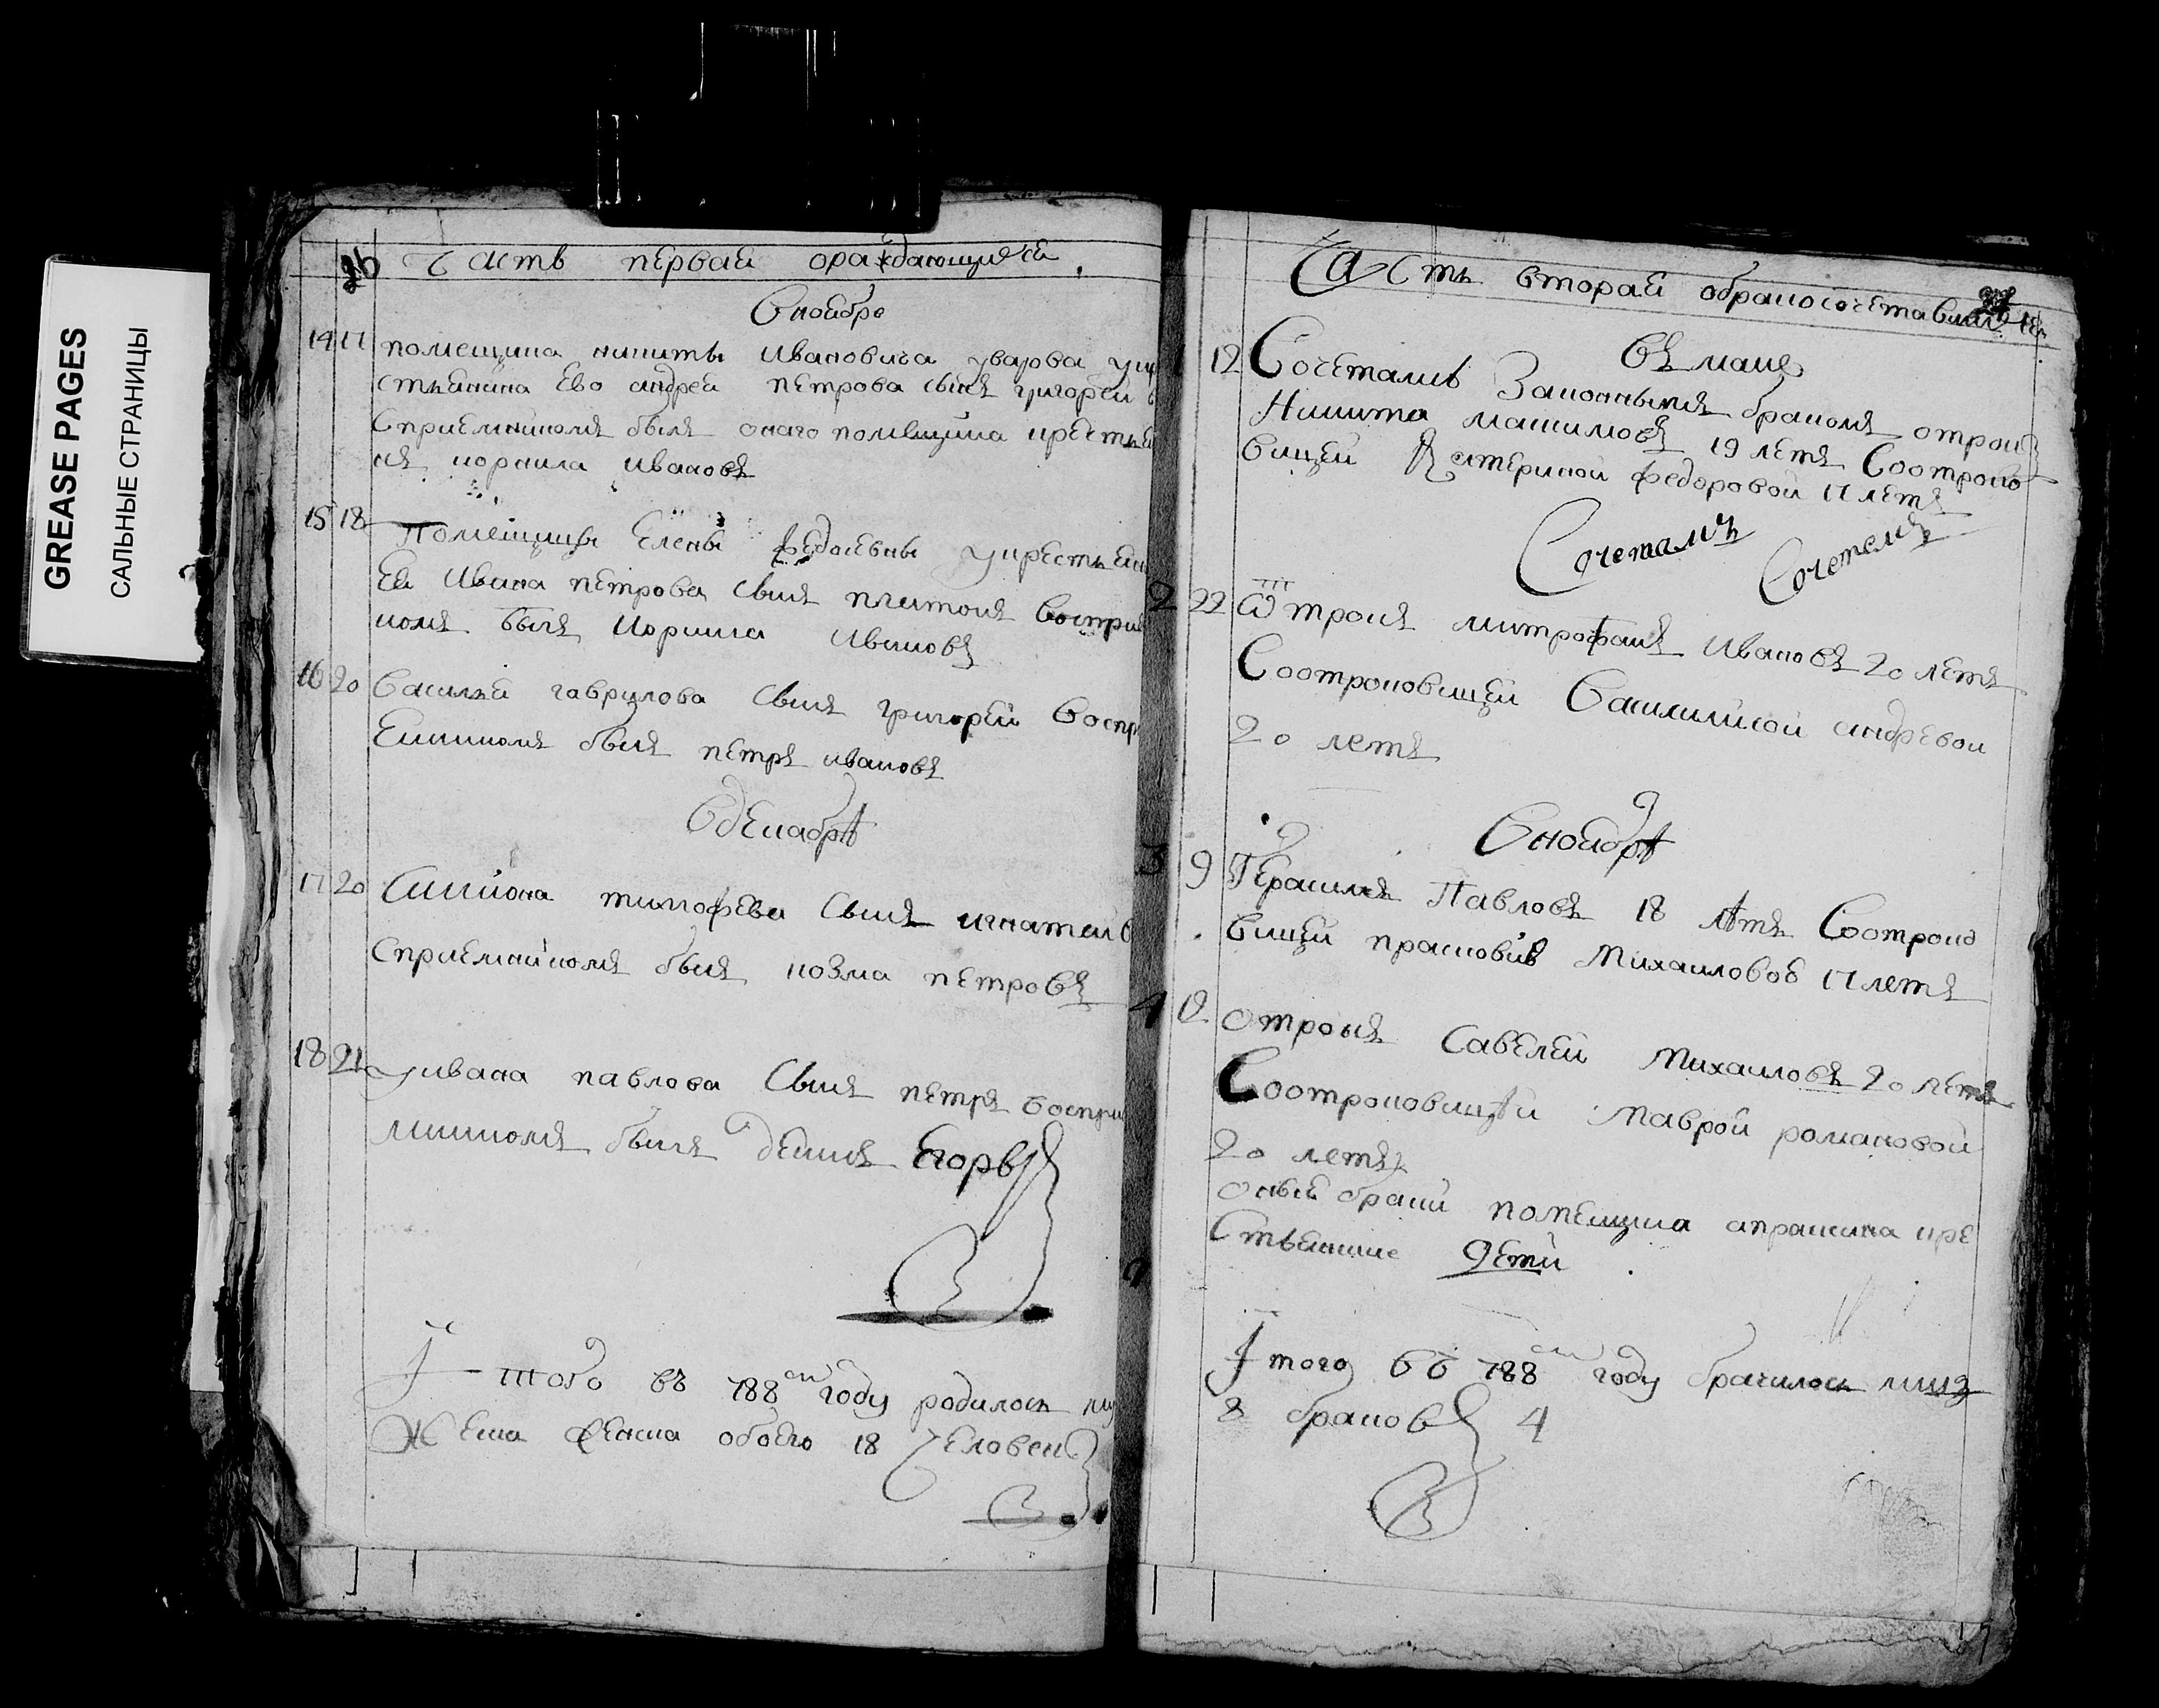 GREASE PAGES
САЛЬНЫЕ СТРАНИЦЫ
26 Часть первая ораждающихся
Вноябре
14 17 помещика никиты Ивановича уварова укре
стьянина Ево андрея петрова сынъ григореи во
Сприемникомъ былъ онаго помещика крестья
нъ корнила Ивановъ
15 18 Помещицы Елены Федосевны укрестьян
Ея Ивана петрова сынъ платонъ воспри
комъ былъ Корнила Ивановъ
16 20 Василья гаврилова сынъ григореи воспр
Емникомъ былъ петръ ивановъ
Вдекабрѣ
17 20 Симиона тимофева сынъ игнатеи во
сприемникомъ былъ козма петровъ
18 21 уивана павлова сынъ петръ воспри
мникомъ былъ Егоръ
Итого въ 788 году родилось му
жеска женска обоего 18 человекъ
Часть вторая обракосочетавшихся
27
Въ маие
1 12 Сочетались Законнымъ бракомъ отрокъ
Никита макимовъ 19 летъ Соотроко
вицей Катериной федоровой 17 летъ
Сочетались Сочетались
2 22 Ѿтрокъ митрофанъ Ивановъ 20 летъ
Соотроковицей Василисой андревои
20 летъ
Вноябрѣ
3 9 Герасимъ Павловъ 18 лѣтъ Соотроко
вицеи прасковив Михаиловой 17 летъ
4 отрокъ Савелеи Михаиловъ 20 летъ
Соотроковицѣи Маврой романовой
20 летъ
оныя браки помещика апраксина кре
Стьянские Дети
Итого въ 788 году
браковъ 4